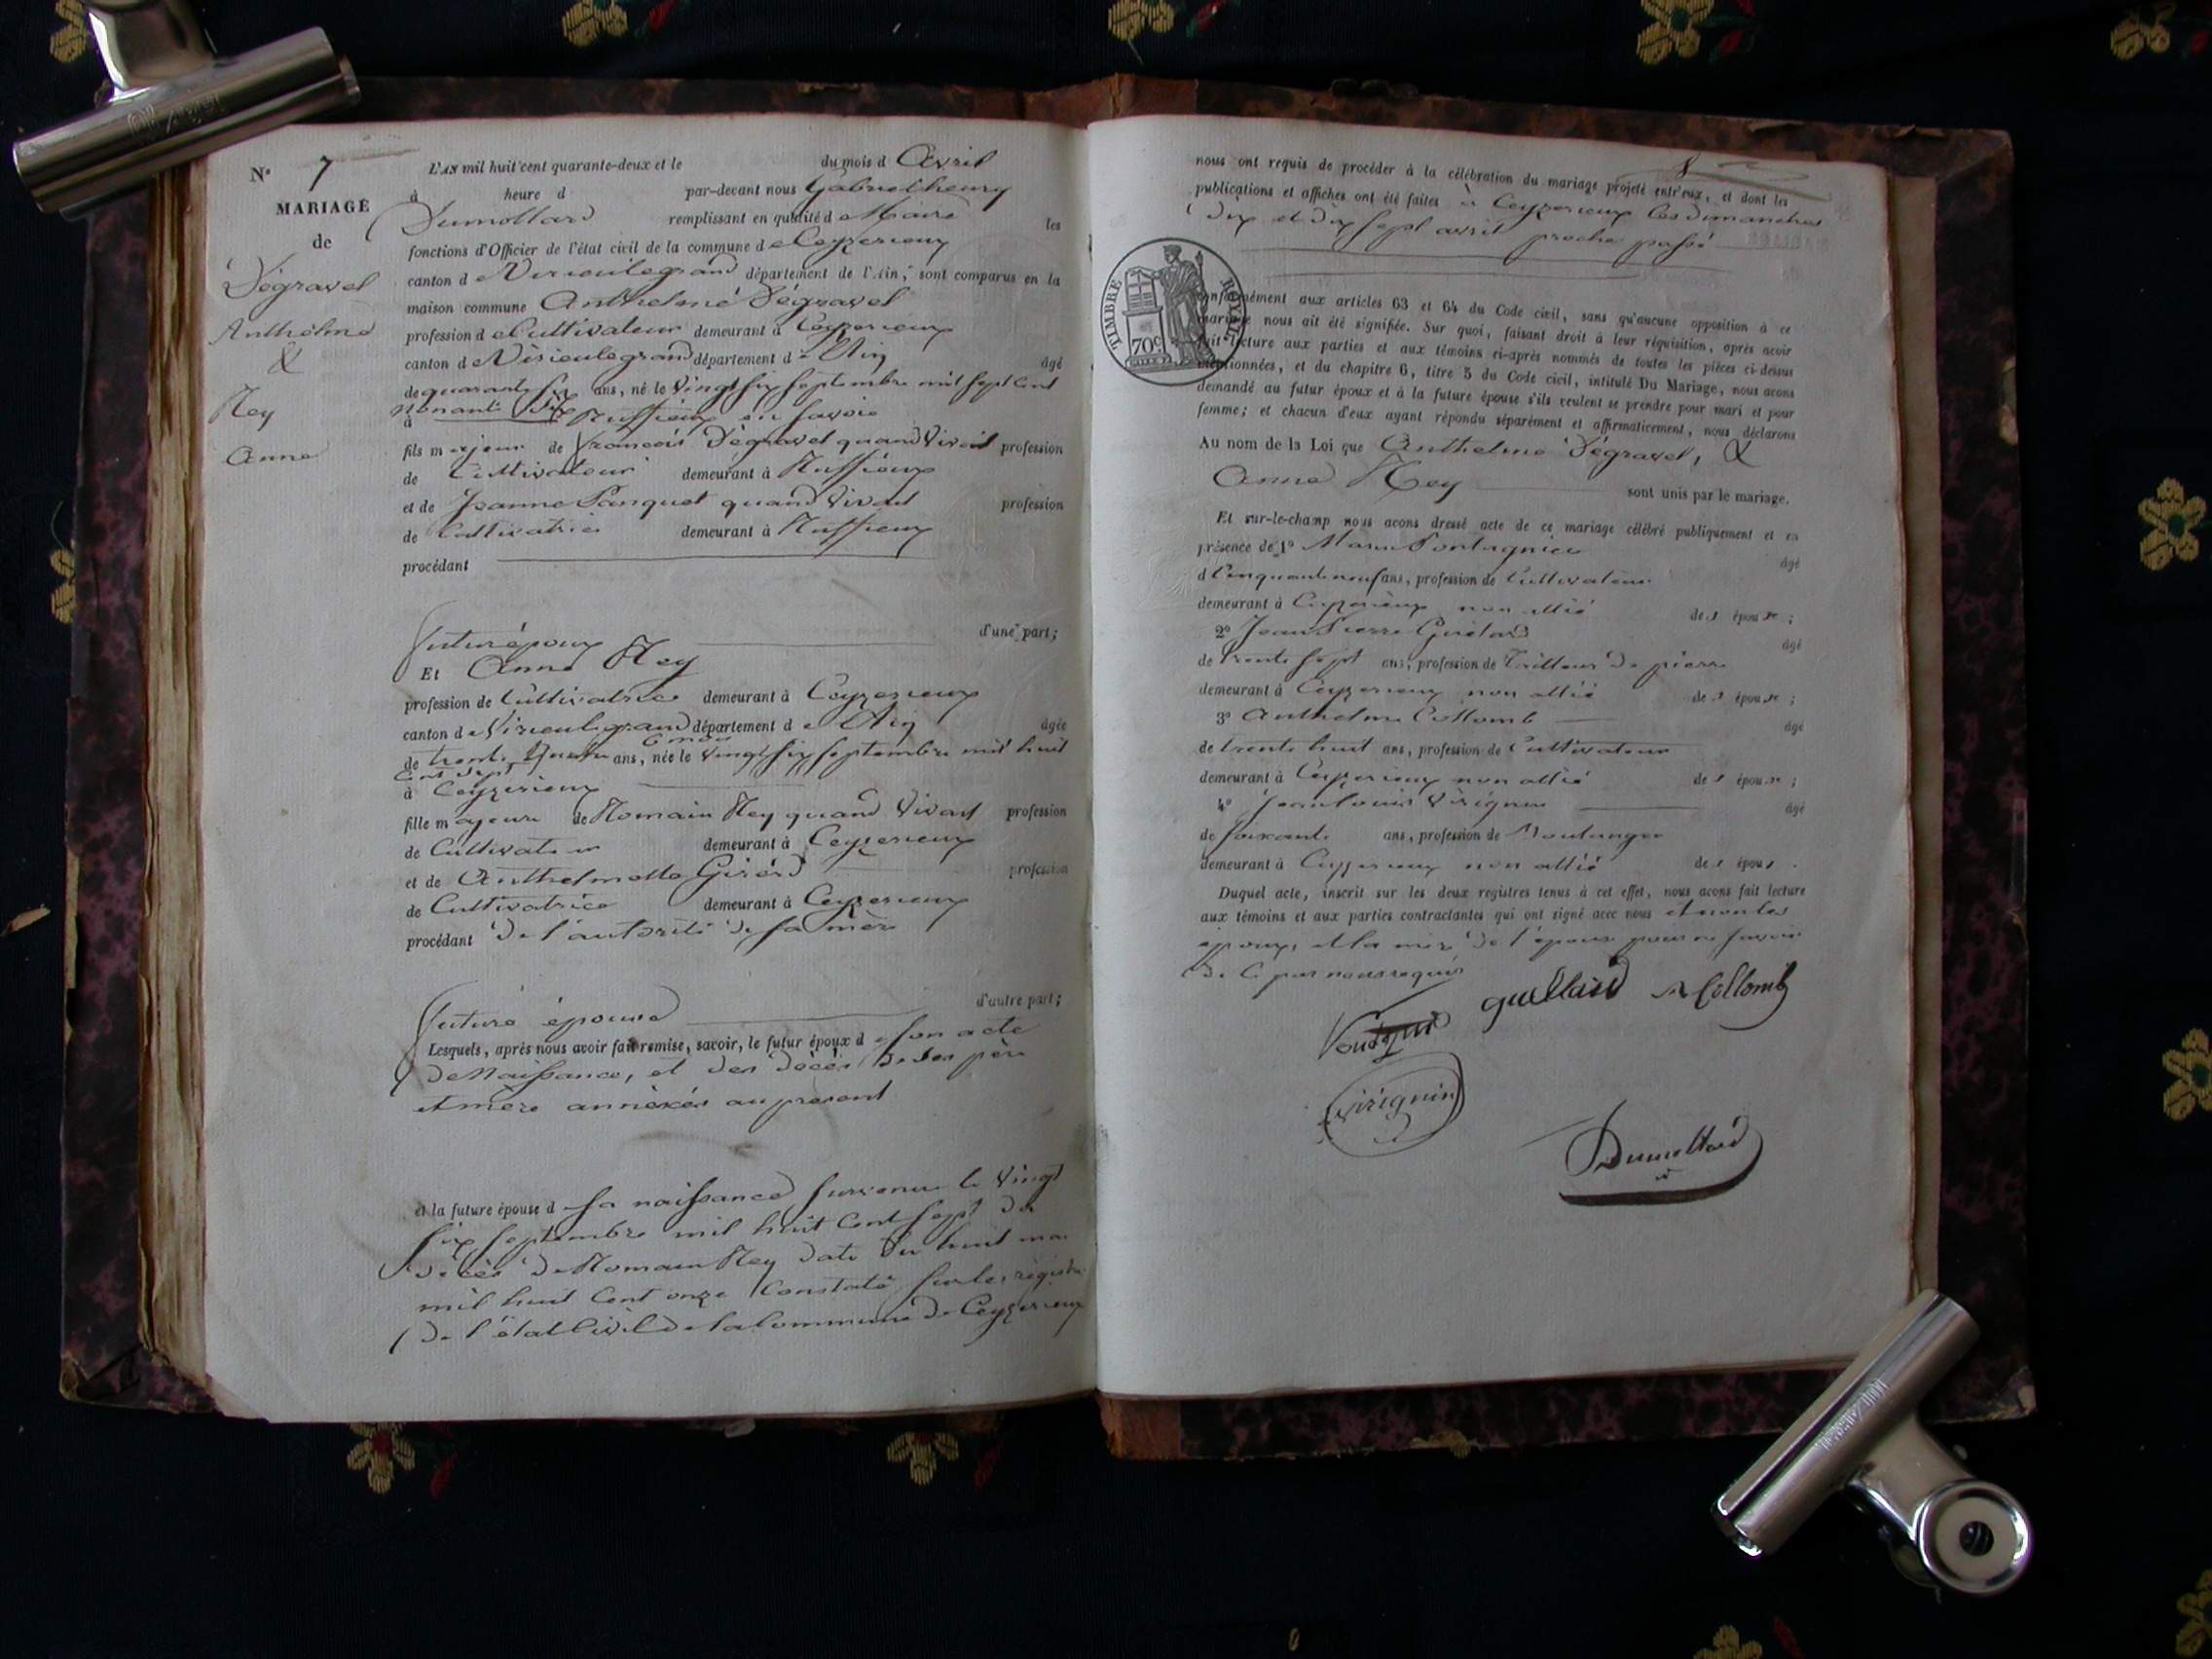 N° 7
MARIAGE
de
Dégravel
Anthelme
&
Rey
Anne
L'AN mil huit cent quarante-deux et le du mois d Avril
à heure d par-devant nous Gabriel henry
Dumollard remplissant en qualité de Maire les
fonctions d'Officier de l'état civil de la commune de Ceyzerieux
canton de Virieulegrand département de l'Ain, sont comparus en la
maison commune Anthelme Dégravel
profession de Cultivateur demeurant à Ceyzerieux
canton de Virieulegrand département de l'Ain âgé
de quarante six ans, né le vingt six septembre mil sept cent
nonante
à Ruffieux en Savoie
fils majeur de françois Dégravel quand vivait profession
de Cultivateur demeurant à Ruffieux
et de Jeanne Panquet quand vivait profession
de Cultivatrice demeurant à Ruffieux
procédant
futur époux d'une part;
Et Anne Rey
profession de Cultivatrice demeurant à Ceyzerieux
canton de Virieulegrand département de l'Ain âgée
de trente quatre ans, née le vingt six septembre mil huit
cent sept
à Ceyzerieux
fille majeure de Romain Rey quand vivait profession
de Cultivateur demeurant à Ceyzerieux
et de Anthelmette Girerd profession
de Cultivatrice demeurant à Ceyzerieux
procédant de l'autorité de sa mère
future épouse d'autre part;
Lesquels, après nous avoir fait remise, savoir, le futur époux de son acte
de Naissance, et des décès de ses père
et mère annéxés au présent
et la future épouse d sa naissance survenue le vingt
six septembre mil huit cent sept du
décès de Romain Rey daté du huit mai
mil huit cent onze constaté sur les registres
de l'état Civil de la Commune de Ceyzerieux
nous ont requis de procéder à la célébration du mariage projeté entr'eux, et dont les
publications et affiches ont été faites à Ceyzerieux les dimanches
dix et dix sept avril proche passé
TIMBRE ROYAL
70c
conformément aux articles 63 et 64 du Code civil, sans qu'aucune opposition à ce
mariage nous ait été signifiée. Sur quoi, faisant droit à leur réquisition, après avoir
fait lecture aux parties et aux témoins ci-après nommés de toutes les pièces ci-dessus
mentionnées, et du chapitre 6, titre 5 du Code civil, intitulé Du Mariage, nous avons
demandé au futur époux et à la future épouse s'ils veulent se prendre pour mari et pour
femme; et chacun d'eux ayant répondu séparément et affirmativement, nous déclarons
Au nom de la Loi que Anthelme Dégravel, &
Anne Rey sont unis par le mariage.
Et sur-le-champ nous avons dressé acte de ce mariage célébré publiquement et en
présence de 1° âgé
de Cinquante neuf ans, profession de Cultivateur
demeurant à Ceyzerieux non allié des époux;
2° Jean Pierre âgé
de trente sept ans, profession de Tailleur de pierre
demeurant à Ceyzerieux non allié des époux;
3° Anthelme Collomb âgé
de trente huit ans, profession de Cultivateur
demeurant à Ceyzerieux non allié des époux;
4° Jean Louis Virignin âgé
de soixante ans, profession de Boulanger
demeurant à Ceyzerieux non allié des époux.
Duquel acte, inscrit sur les deux registres tenus à cet effet, nous avons fait lecture
aux témoins et aux parties contractantes qui ont signé avec nous et non les
époux, et la mère de l'épouse pour ne savoir
de ce par nous requis
A Collomb
Virignin
Dumollard